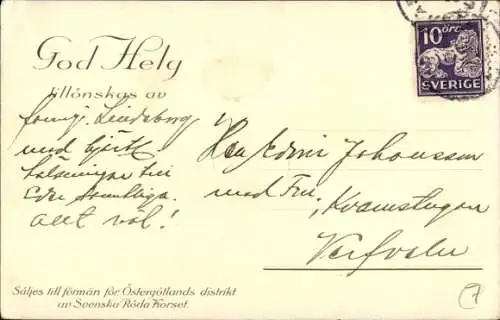 God Helg
tillönskas av
familj. Lindeberg
med hjärtl.
hälsningar till
Eder samtliga.
allt väl!
10 ÖRE
SVERIGE
Herr Edvin Johansson
med Fru,
Kvarnstugan
Säljes till förmån för Östergötlands distrikt
av Svenska Röda Korset.
7